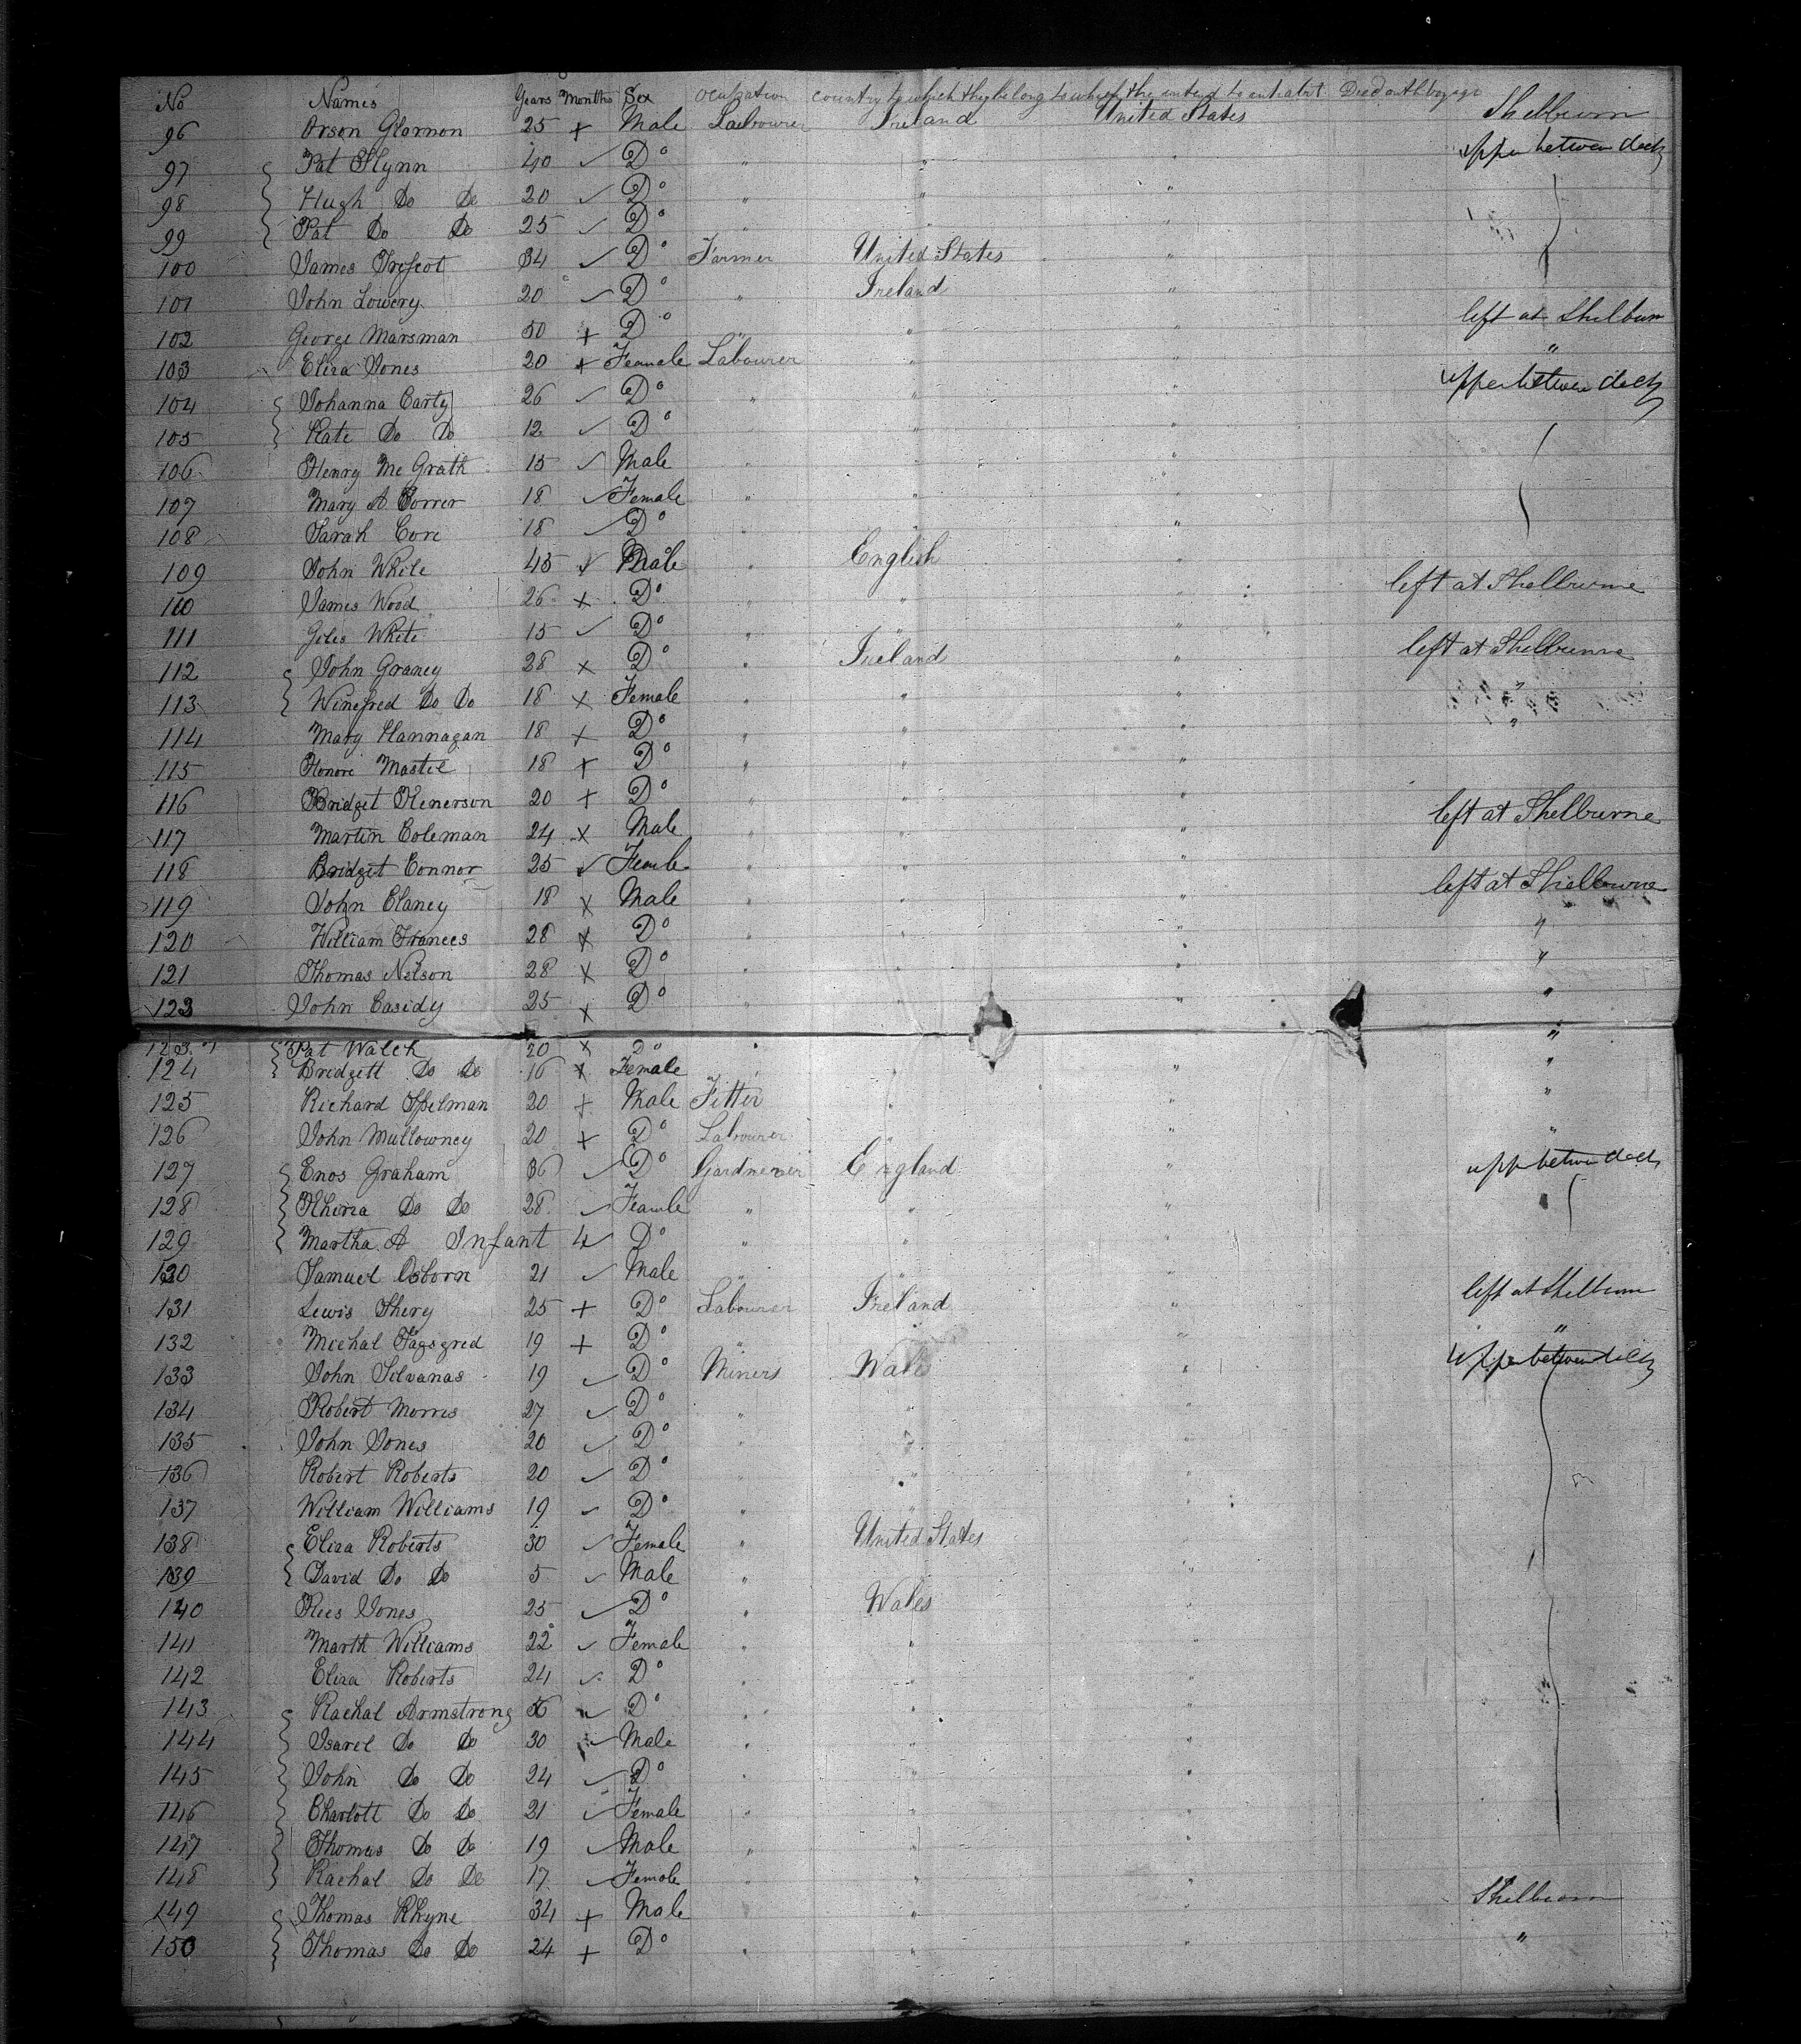 No Names Years Months Sex Ocupation Country to which they belong to which they intend to inhabit Died on th voyage
96 Orson Glornon 25 + Male Labourer Ireland United States Shelburn
97 Pat Flynn 40 ✓ Do " " " upper between decks
98 Hugh Do Do 20 ✓ Do " " "
99 Pat Do Do 25 ✓ Do " "
100 James Trefcot 34 ✓ Do Farmer United States "
101 John Lowery 20 ✓ Do " Ireland "
102 George Marsman 50 + Do " " " left at Shelburn
103 Eliza Jones 20 + Feamale Labourer " " "
104 Johanna Carty 26 ✓ Do " " " upper between decks
105 Kate Do Do 12 ✓ Do " " "
106 Henry Mc Grath 15 ✓ Male " " "
107 Mary A Correr 18 ✓ Female " " "
108 Sarah Core 18 ✓ Do " " "
109 John White 45 ✓ Male " English "
110 James Wood 26 x Do " " " left at Shelburne
111 Giles White 15 ✓ Do " " "
112 John Graney 28 x Do " Ireland " left at Shelburne
113 Winefred Do Do 18 x Female " " " "
114 Mary Hannagan 18 x Do " " " "
115 Honore Mastie 18 + Do " " "
116 Bridget Kenerson 20 + Do " " "
117 Martin Coleman 24 x Male " " " left at Shelburne
118 Bridget Connor 25 ✓ Feamle " " "
119 John Claney 18 x Male " " " left at Shelburne
120 William Frances 28 x Do " " " "
121 Thomas Nelson 28 x Do " " " "
123 John Casidy 25 x Do " " " "
123 Pat Walch 20 x Do " "
124 Bridgett Do Do 16 x Female " " "
125 Richard Spelman 20 + Male Fitter " " "
126 John Mullowney 20 + Do Labourer " " "
127 Enos Graham 36 ✓ Do Gardnerer England " upper betwen decks
128 Do Do 28 ✓ Feamle " " "
129 Martha A Infant 4 ✓ Do " " "
130 Samuel Osborn 21 ✓ Male " " "
131 Lewis Shery 25 + Do Labourer Ireland " left at Shelburn
132 Michal 19 + Do " " " "
133 John Silvanas 19 ✓ Do Miners Wales " upper between decks
134 Robert Morris 27 ✓ Do " " "
135 John Jones 20 ✓ Do " " "
136 Robert Roberts 20 ✓ Do " " "
137 William Williams 19 ✓ Do " " "
138 Eliza Roberts 30 ✓ Female " United States "
139 David Do Do 5 ✓ Male " "
140 Rees Jones 25 ✓ Do " Wales "
141 Marth Williams 22 ✓ Female " " "
142 Eliza Roberts 24 ✓ Do " " "
143 Rachal Armstrong ✓ Do " " "
144 Isarel Do Do 30 ✓ Male " " "
145 John Do Do 24 ✓ Do " " "
146 Charlott Do Do 21 ✓ Female " " "
147 Thomas Do Do 19 ✓ Male " " "
148 Rachal Do Do 17 ✓ Female " " "
149 Thomas Rhyne 34 + Male " " " Shelburn
150 Thomas Do Do 24 + Do " " " "